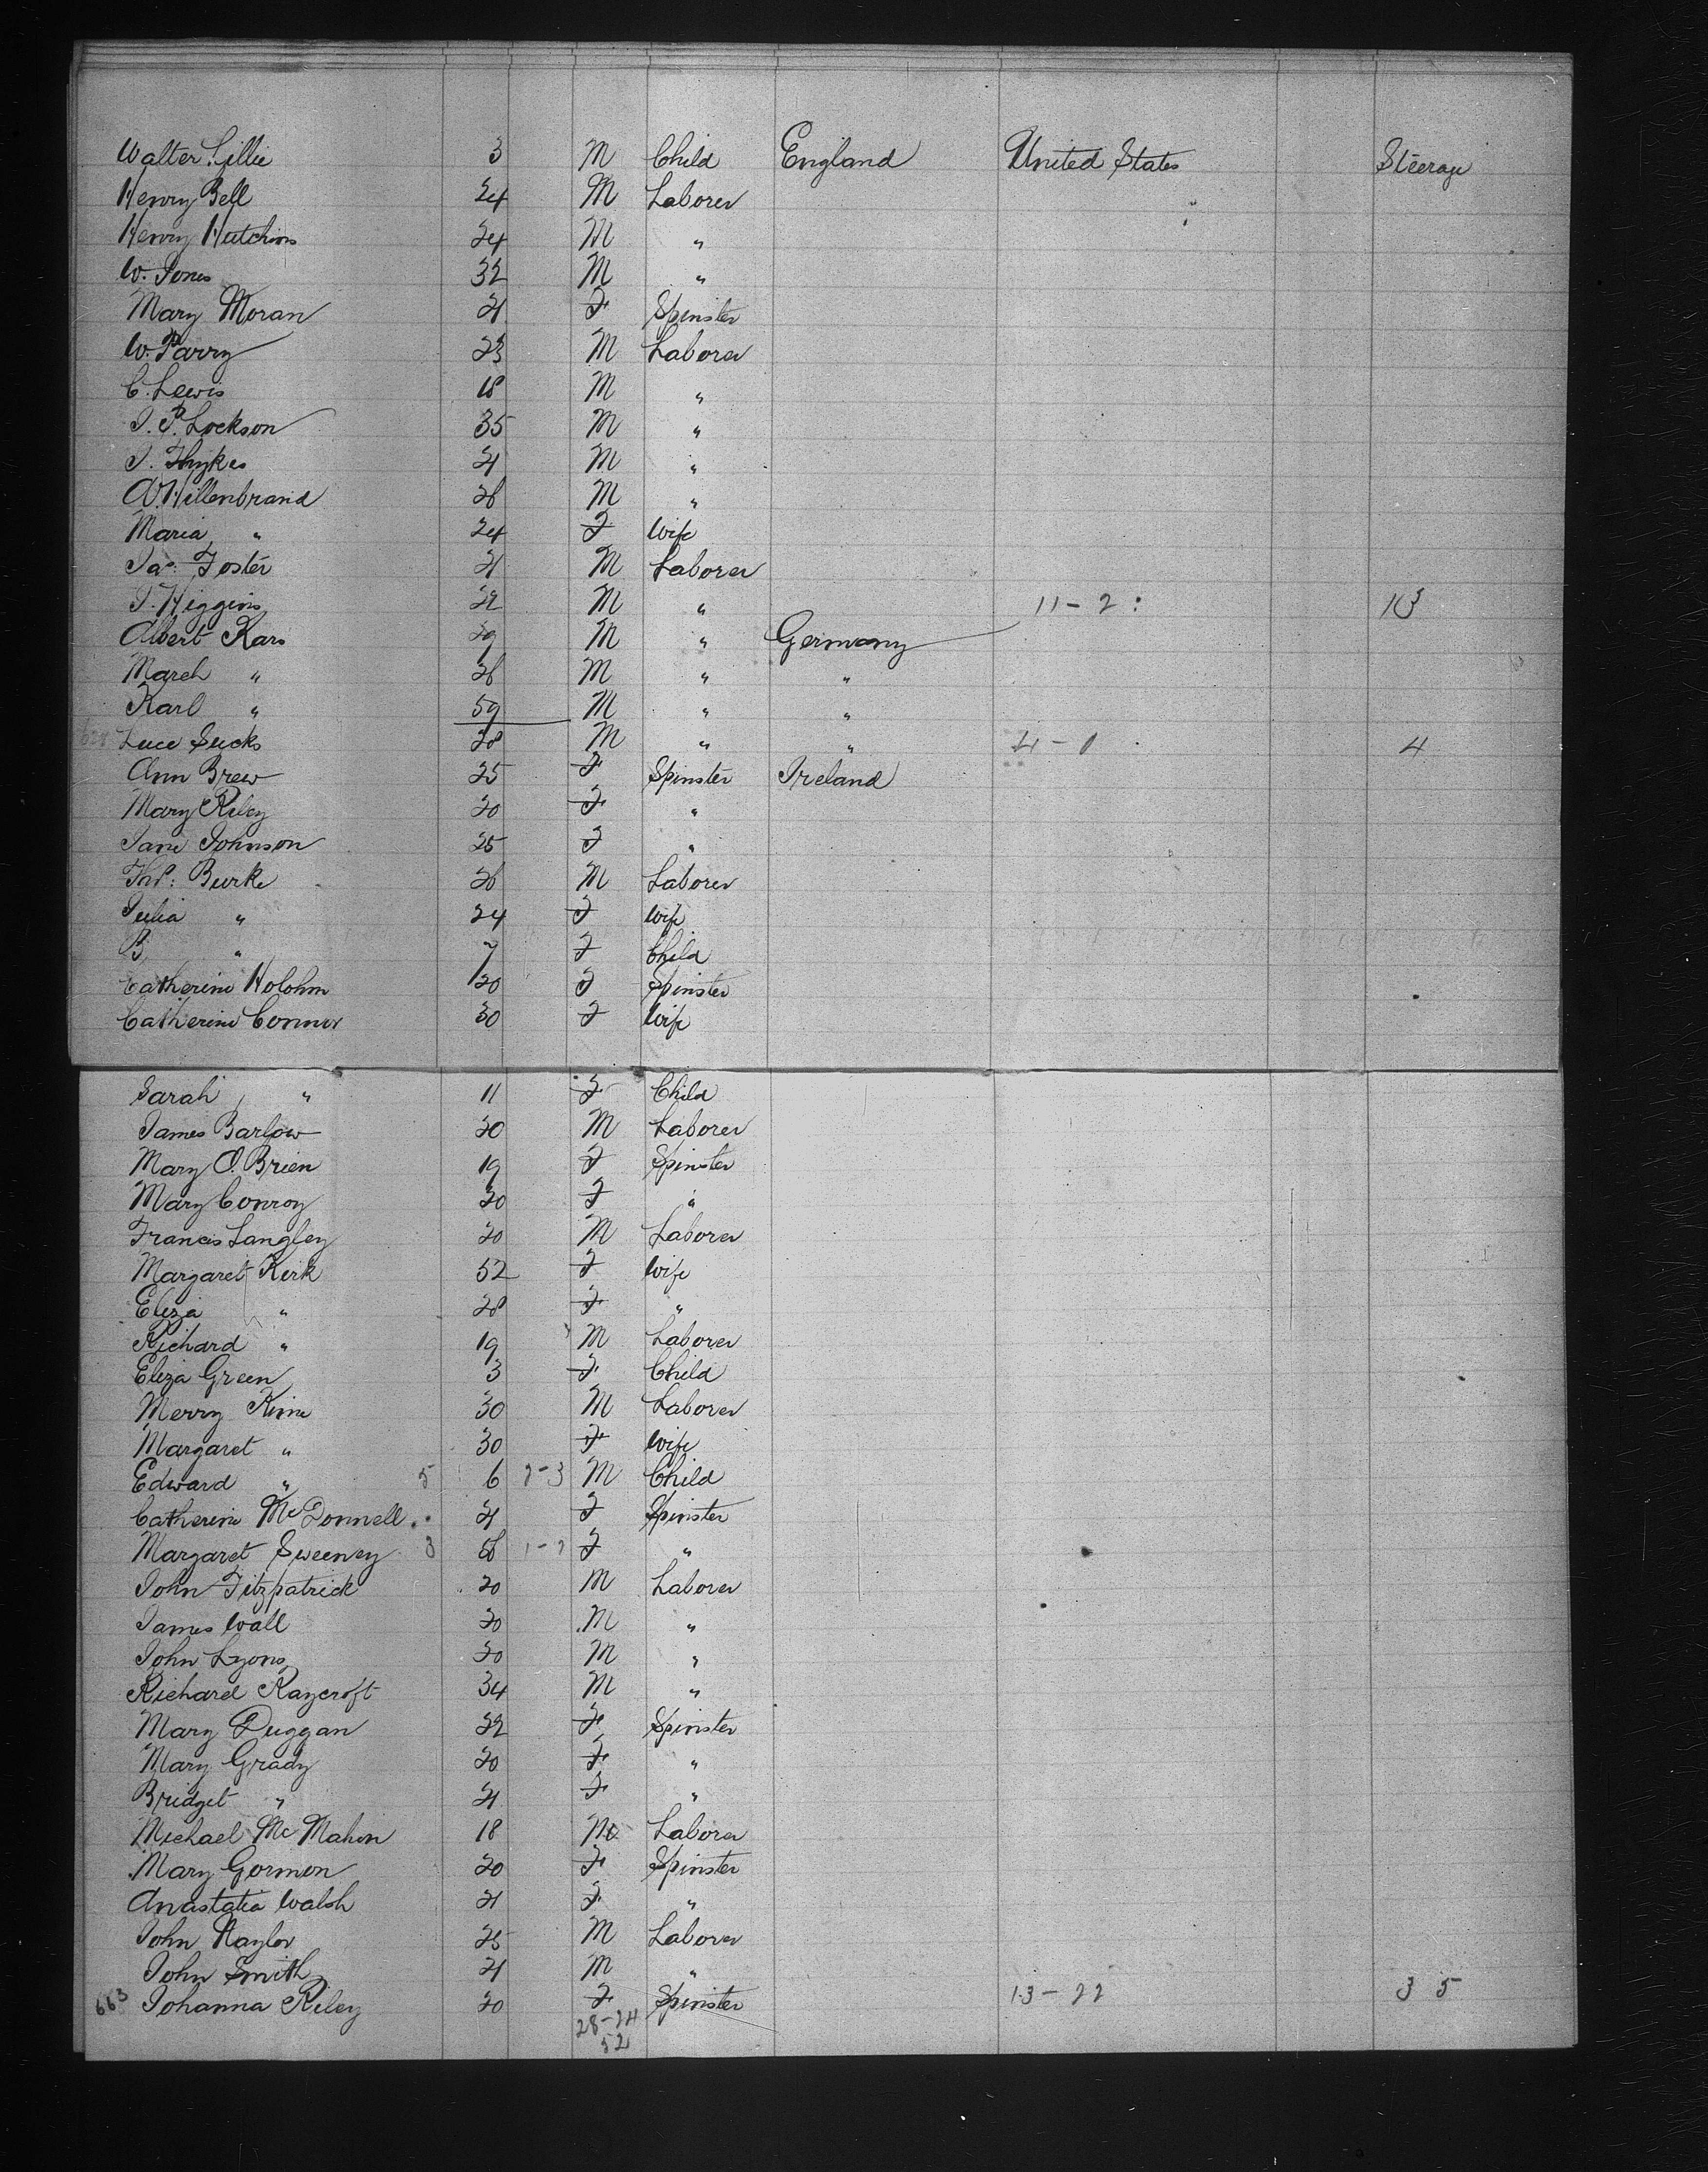 Walter Lillie 3 M Child England United States Steerage
Henry Bell 24 M Laborer
Henry Hutchins 24 M "
W. Jones 32 M "
Mary Moran 21 F Spinster
W. Parry 23 M Laborer
C. Lewis 18 M "
J. P. Lockson 35 M "
J. Thykes 21 M "
A. Hillenbrand 26 M "
Maria " 24 F Wife
Jas: Foster 21 M Laborer
J. Higgins 22 M " 11-2: 13
Albert Kars 29 M " Germany
March " 26 M " "
Karl " 59 M " "
628 Luce Sucks 28 M " " 4-0 4
Ann Brew 25 F Spinster Ireland
Mary Riley 20 F "
Jane Johnson 25 F "
Thos: Burke 26 M Laborer
Julia " 24 F Wife
B " 7 F Child
Catherine Holohm 20 F Spinster
Catherine Connor 30 F Wife
Sarah " 11 F Child
James Barlow 20 M Laborer
Mary O. Brien 19 F Spinster
Mary Conroy 20 F "
Francis Langley 20 M Laborer
Margaret Kirk 52 F Wife
Eliza " 28 F "
Richard " 19 M Laborer
Eliza Green 3 F Child
Merry Kime 30 M Laborer
Margaret " 30 F Wife
Edward " 5 6 2-3 M Child
Catherine McDonnell 21 F Spinster
Margaret Sweeney 3 1-2 F "
John Fitzpatrick 20 M Laborer
James Wall 20 M "
John Lyons 20 M "
Richard Raycroft 34 M "
Mary Duggan 22 F Spinster
Mary Grady 20 F "
Bridget " 21 F "
Michael McMahon 18 M Laborer
Mary Gormon 20 F Spinster
Anastatia Walsh 21 F "
John Naylor 25 M Laborer
John Smith 21 M "
663 Johanna Riley 20 F Spinster 13-22 35
28-24
52